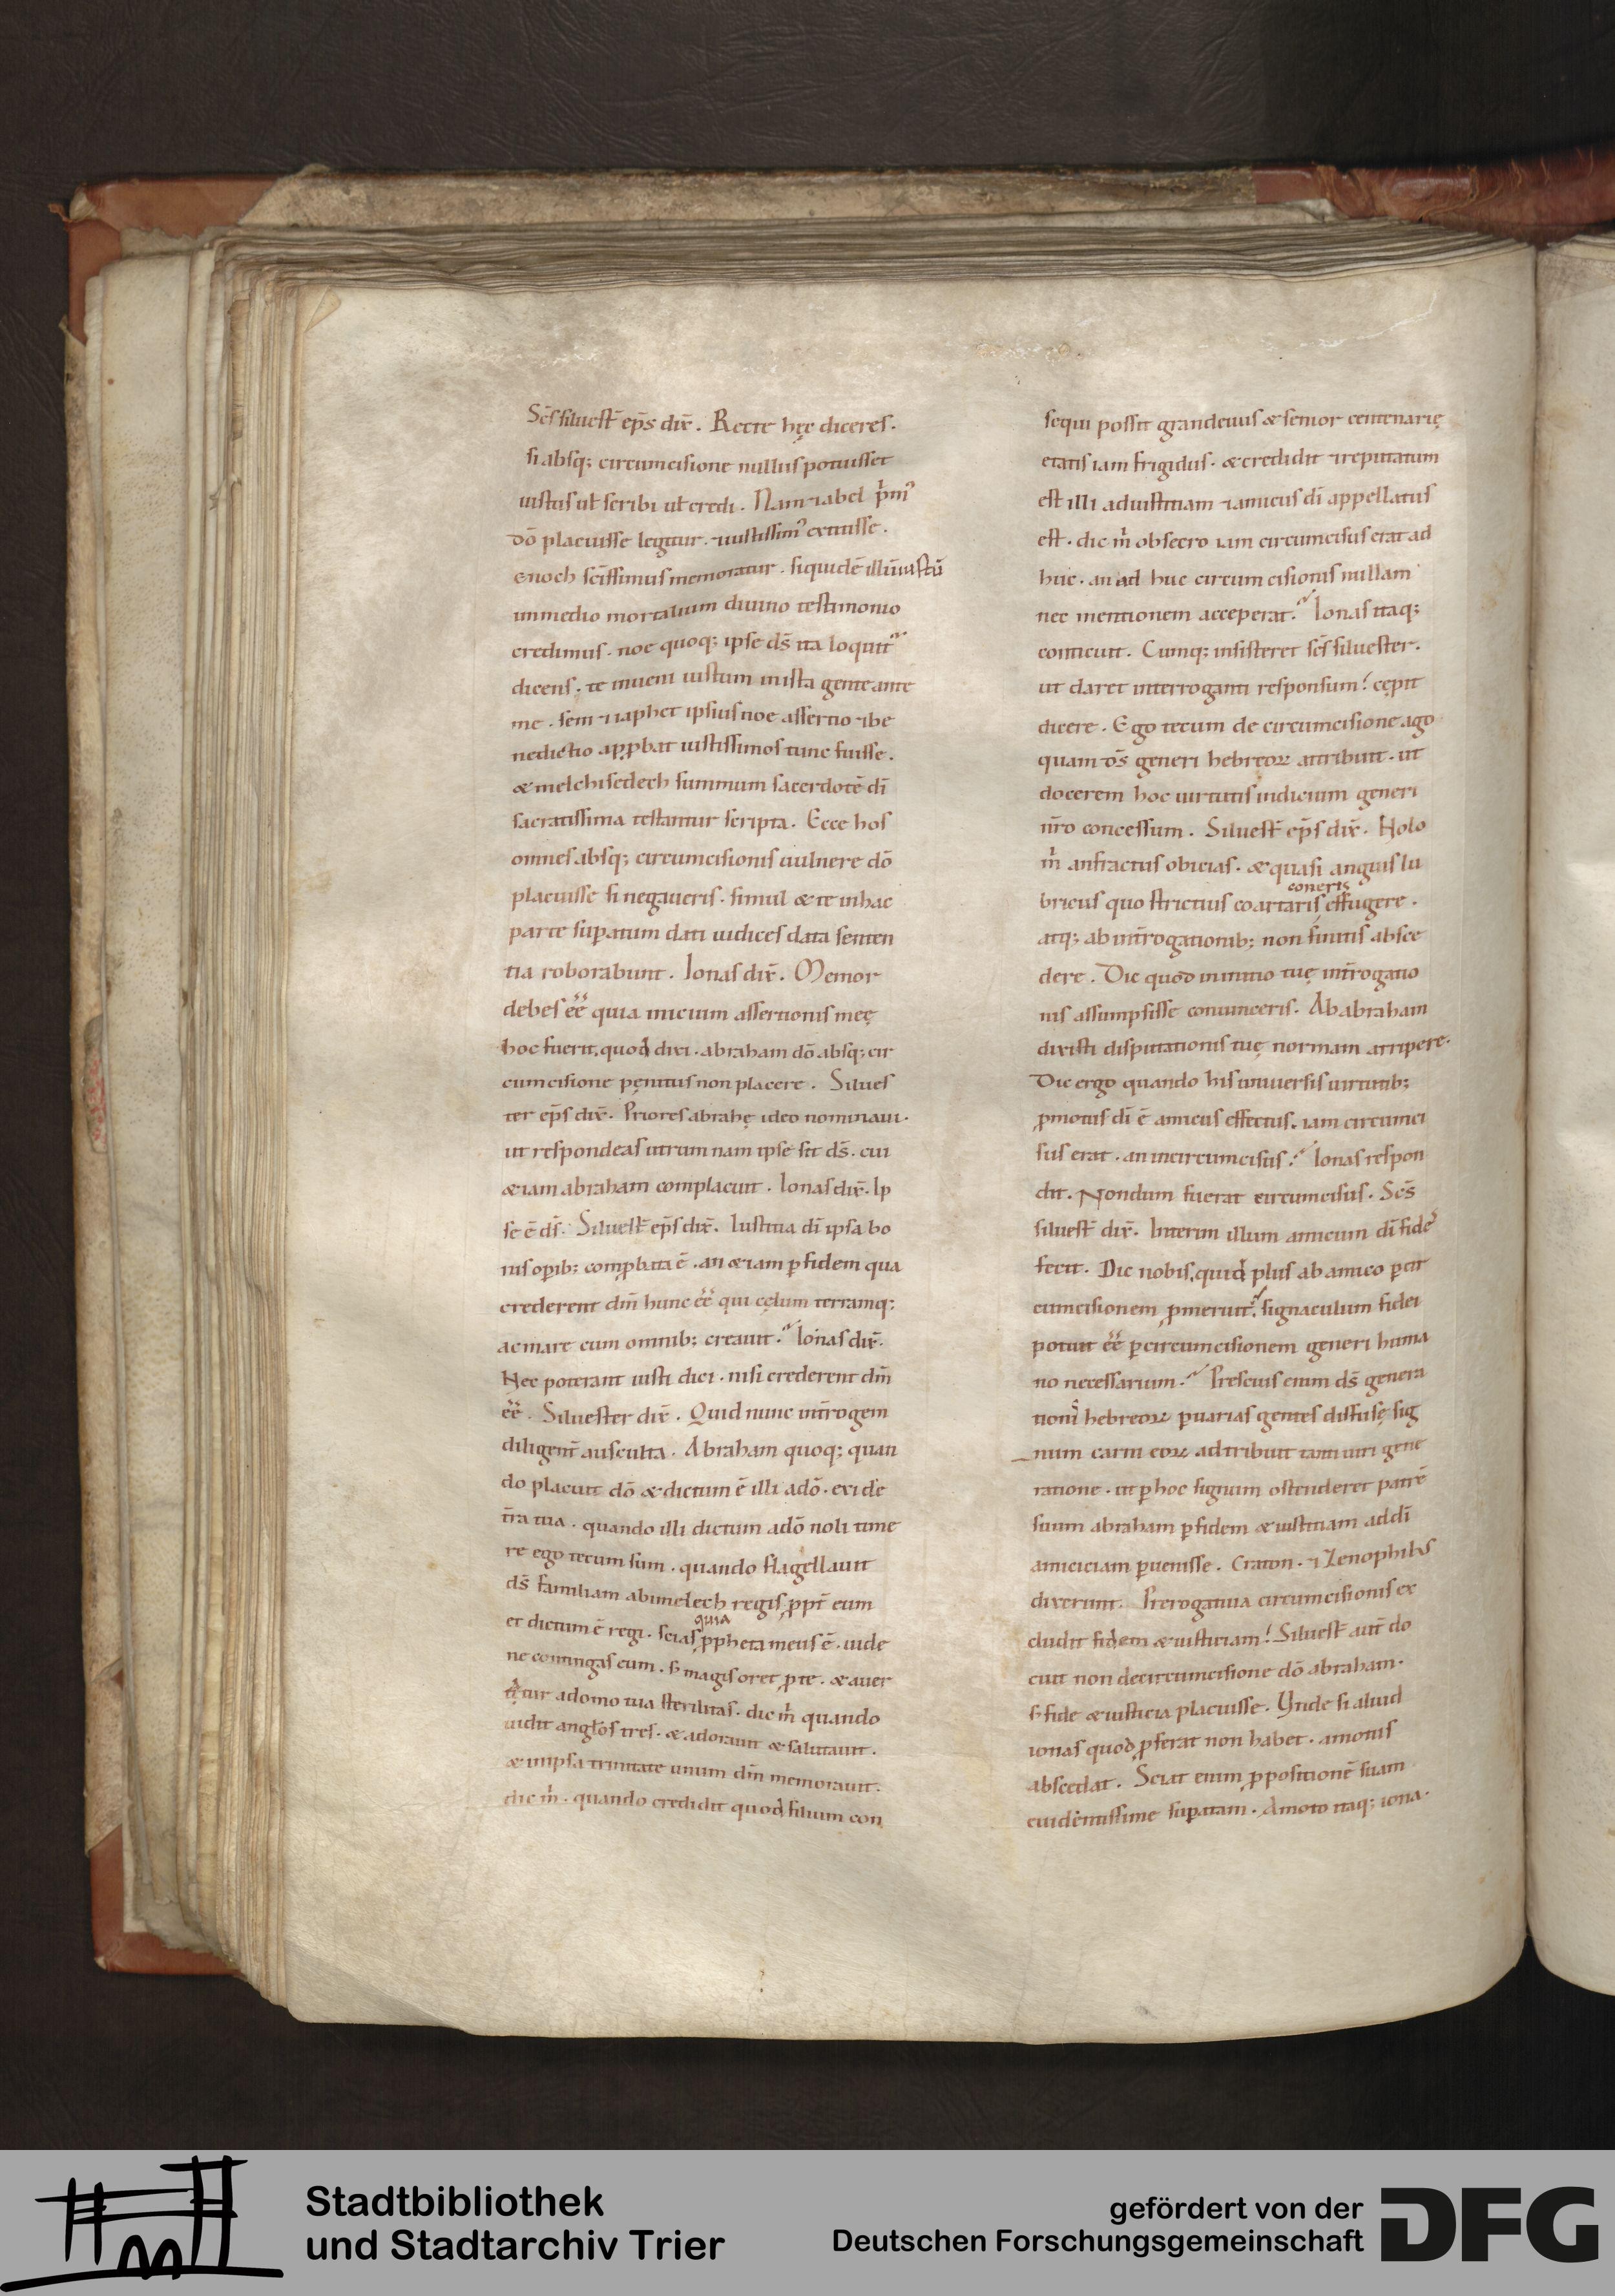 Scs siluest̄ ep̄s dix̄. Recte hęc diceres.
si absq; circumcisione nullus potuisset
iustus ut̄ scribi ut̄ credi. Nam ⁊abel p̄mꝰ
dō placuisse legitur. ⁊iustissimꝰ extitisse.
enoch sc̄issimus memoratur. siquidē illū iustū
inmedio mortalium diuino testimonio
credimus. noe quoq; ipse ds̄ ita loquit᷑
dicens. te inueni iustum inista gente ante
me. sem ⁊iaphet ipsius noe assertio ⁊be
nedictio app̱bat iustissimos tunc fuisse.
& melchisedech summum sacerdotē dī
sacratissima testantur scripta. Ecce hos
omnes absq; circumcisionis uulnere dō
placuisse si negaueris. simul & te inhac
parte suꝑatum dati iudices data senten
tia roborabunt. Ionas dix̄. Memor
debes ēē quia inicium assertionis meę
hoc fuerit, quod dixi. abraham dō absq; cir
cumcisione penitus non placere. Silues
ter ep̄s dix̄. Priores abrahę ideo nominaui.
ut respondeas utrum nam ipse sit ds̄. cui
&iam abraham complacuit. Ionas dix̄. Ip
se ē ds̄. Siluest̄ ep̄s dix̄. Iustitia dī ipsa bo
nis oꝑib; comꝓbata ē. an &iam ꝑ fidem qua
crederent dm̄ hunc ēē qui cęlum terramq;
ac mare cum omnib; creauit. Ionas dix̄.
Nec poterant iusti dici. nisi crederent dm̄
ēē. Siluester dix̄. Quid nunc int̄rogem
diligent̄ ausculta. Abraham quoq; quan
do placuit dō & dictum ē illi adō. exi de
t̄ra tua. quando illi dictum adō noli time
re ego tecum sum. quando flagellauit
ds̄ familiam abimelech regis ꝓpt̄ eum
et dictum ē regi. scias quia ꝓpheta meus ē. uide
ne contingas eum. s; magis oret ꝓ te. & auer
tetur adomo tua sterilitas. dic m̄ quando
uidit angłos tres. & adorauit & salutauit.
& inipsa trinitate unum dm̄ memorauit.
dic m̄. quando credidit quod filium con
sequi possit grandeuus & senior centenarię
etatis iam frigidus. & credidit ⁊reputatum
est illi adiustitiam ⁊amicus dī appellatus
est. dic m̄ obsecro iam circumcisus erat ad
huc. an ad huc circum cisionis nullam
nec mentionem acceperat. Ionas itaq;
conticuit. Cumq; insisteret scs̄ siluester.
ut daret interroganti responsum! cępit
dicere. Ego tecum de circumcisione ago
quam ds̄ generi hebreoꝝ attribuit. ut
docerem hoc uirtutis indicium generi
nr̄o concessum. Siluest̄ ep̄s dix̄. Nolo
m̄ anfractus obicias. & quasi anguis lu
coneris
bricus quo strictius coartaris effugere.
atq; ab int̄rogationib; non finitis absce
dere. Dic quod ininitio tuę int̄rogatio
nis assumpsisse conuinceris. Ab abraham
dixisti disputationis tuę normam arripere.
Dic ergo quando his uniuersis uirtutib;
ꝓmotus dī ē amicus effectus. iam circumci
sus erat. an incircumcisus. Ionas respon
dit. Nondum fuerat circumcisus. Scs̄
siluest̄ dix̄. Interim illum amicum dī fides
fecit. Dic nobis, quid plus ab amico ꝑ cir
cumcisionem ꝓmeruit. signaculum fidei
potuit ēē ꝑcircumcisionem generi huma
no necessarium. Prescius enim ds̄ genera
tioni hebreoꝝ ꝑuarias gentes diffusę sig
num carni eoꝝ adtribuit tam uiri gene
ratione. ut ꝑ hoc signum ostenderet patrē
suum abraham ꝑ fidem & iustitiam ad dī
amiciciam ꝑuenisse. Craton. ⁊ Zenophilus
dixerunt. Prerogatiua circumcisionis ex
cludit fidem & iusticiam! Siluest̄ aut̄ do
cuit non decircumcisione dō abraham.
s; fide & iusticia placuisse. Vnde si aliud
ionas quod ꝓferat non habet. amotus
abscedat. Sciat enim ꝓpositionē suam
euidentissime suꝑatam. Amoto itaq; iona.
Stadtbibliothek
und Stadtarchiv Trier
gefördert von der
Deutschen Forschungsgemeinschaft
DFG